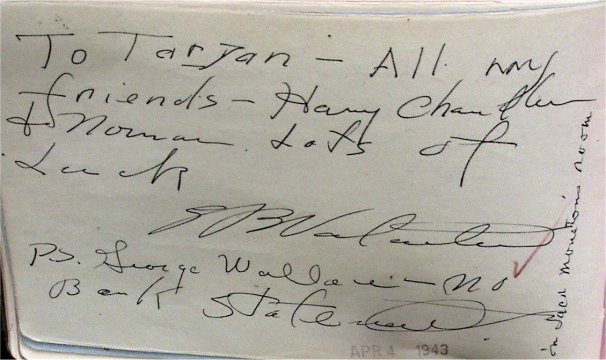 To Tarzan - All my
friends - Harry Chandler
& Norman. Lots of
Luck
PS. George Wallace - no
Bank Statement.
in Jack Moneton's room
APR 4 1943